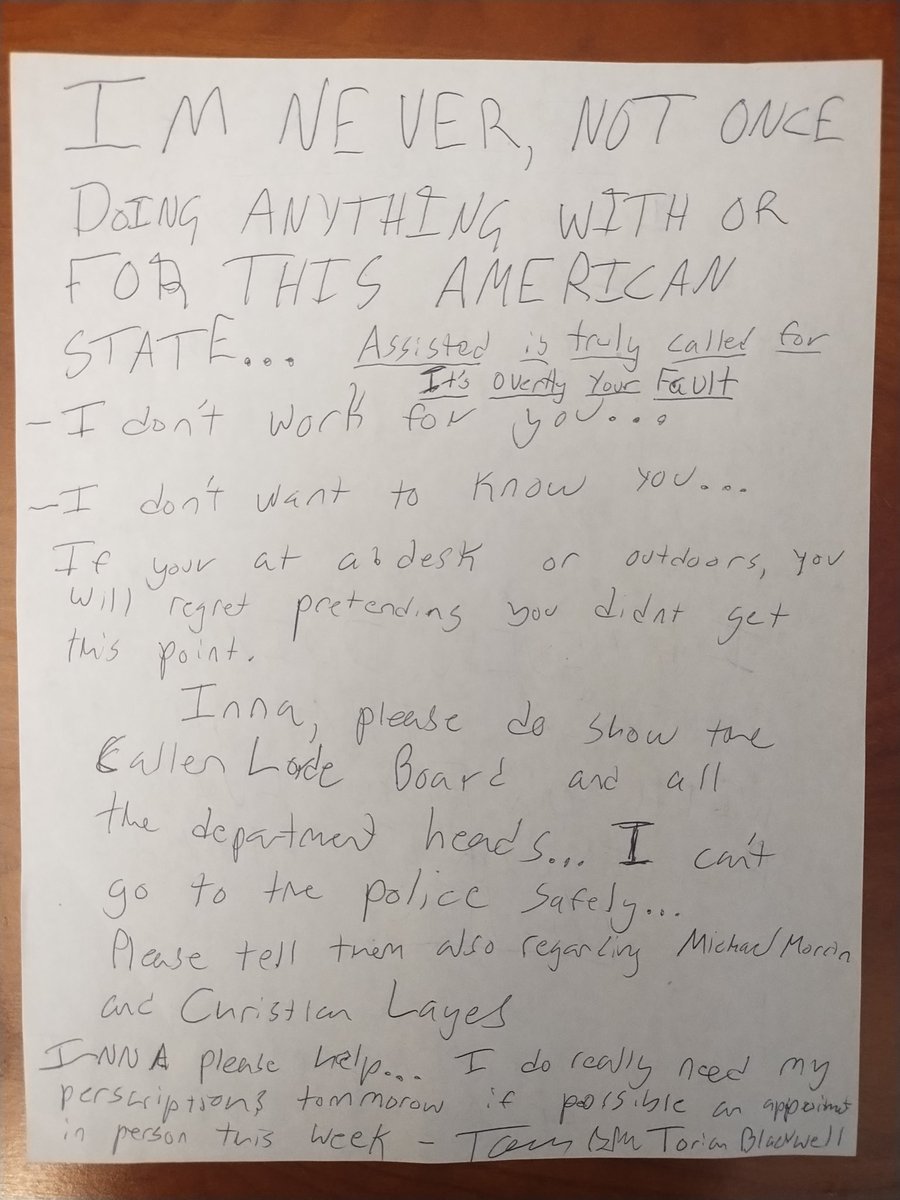 I'M NEVER, NOT ONCE
DOING ANYTHING WITH OR
FOR THIS AMERICAN
STATE... Assisted is truly called for
It's overtly Your Fault
- I don't work for you...
- I don't want to know you...
If your at a desk or outdoors, you
will regret pretending you didnt get
this point.
Inna, please do show the
Callen Lorde Board and all
the department heads... I can't
go to the police safely...
Please tell them also regarding Michael
and Christian Layes
INNA please help... I do really need my
perscriptions tommorow if possible an
in person this week - Torian Blackwell